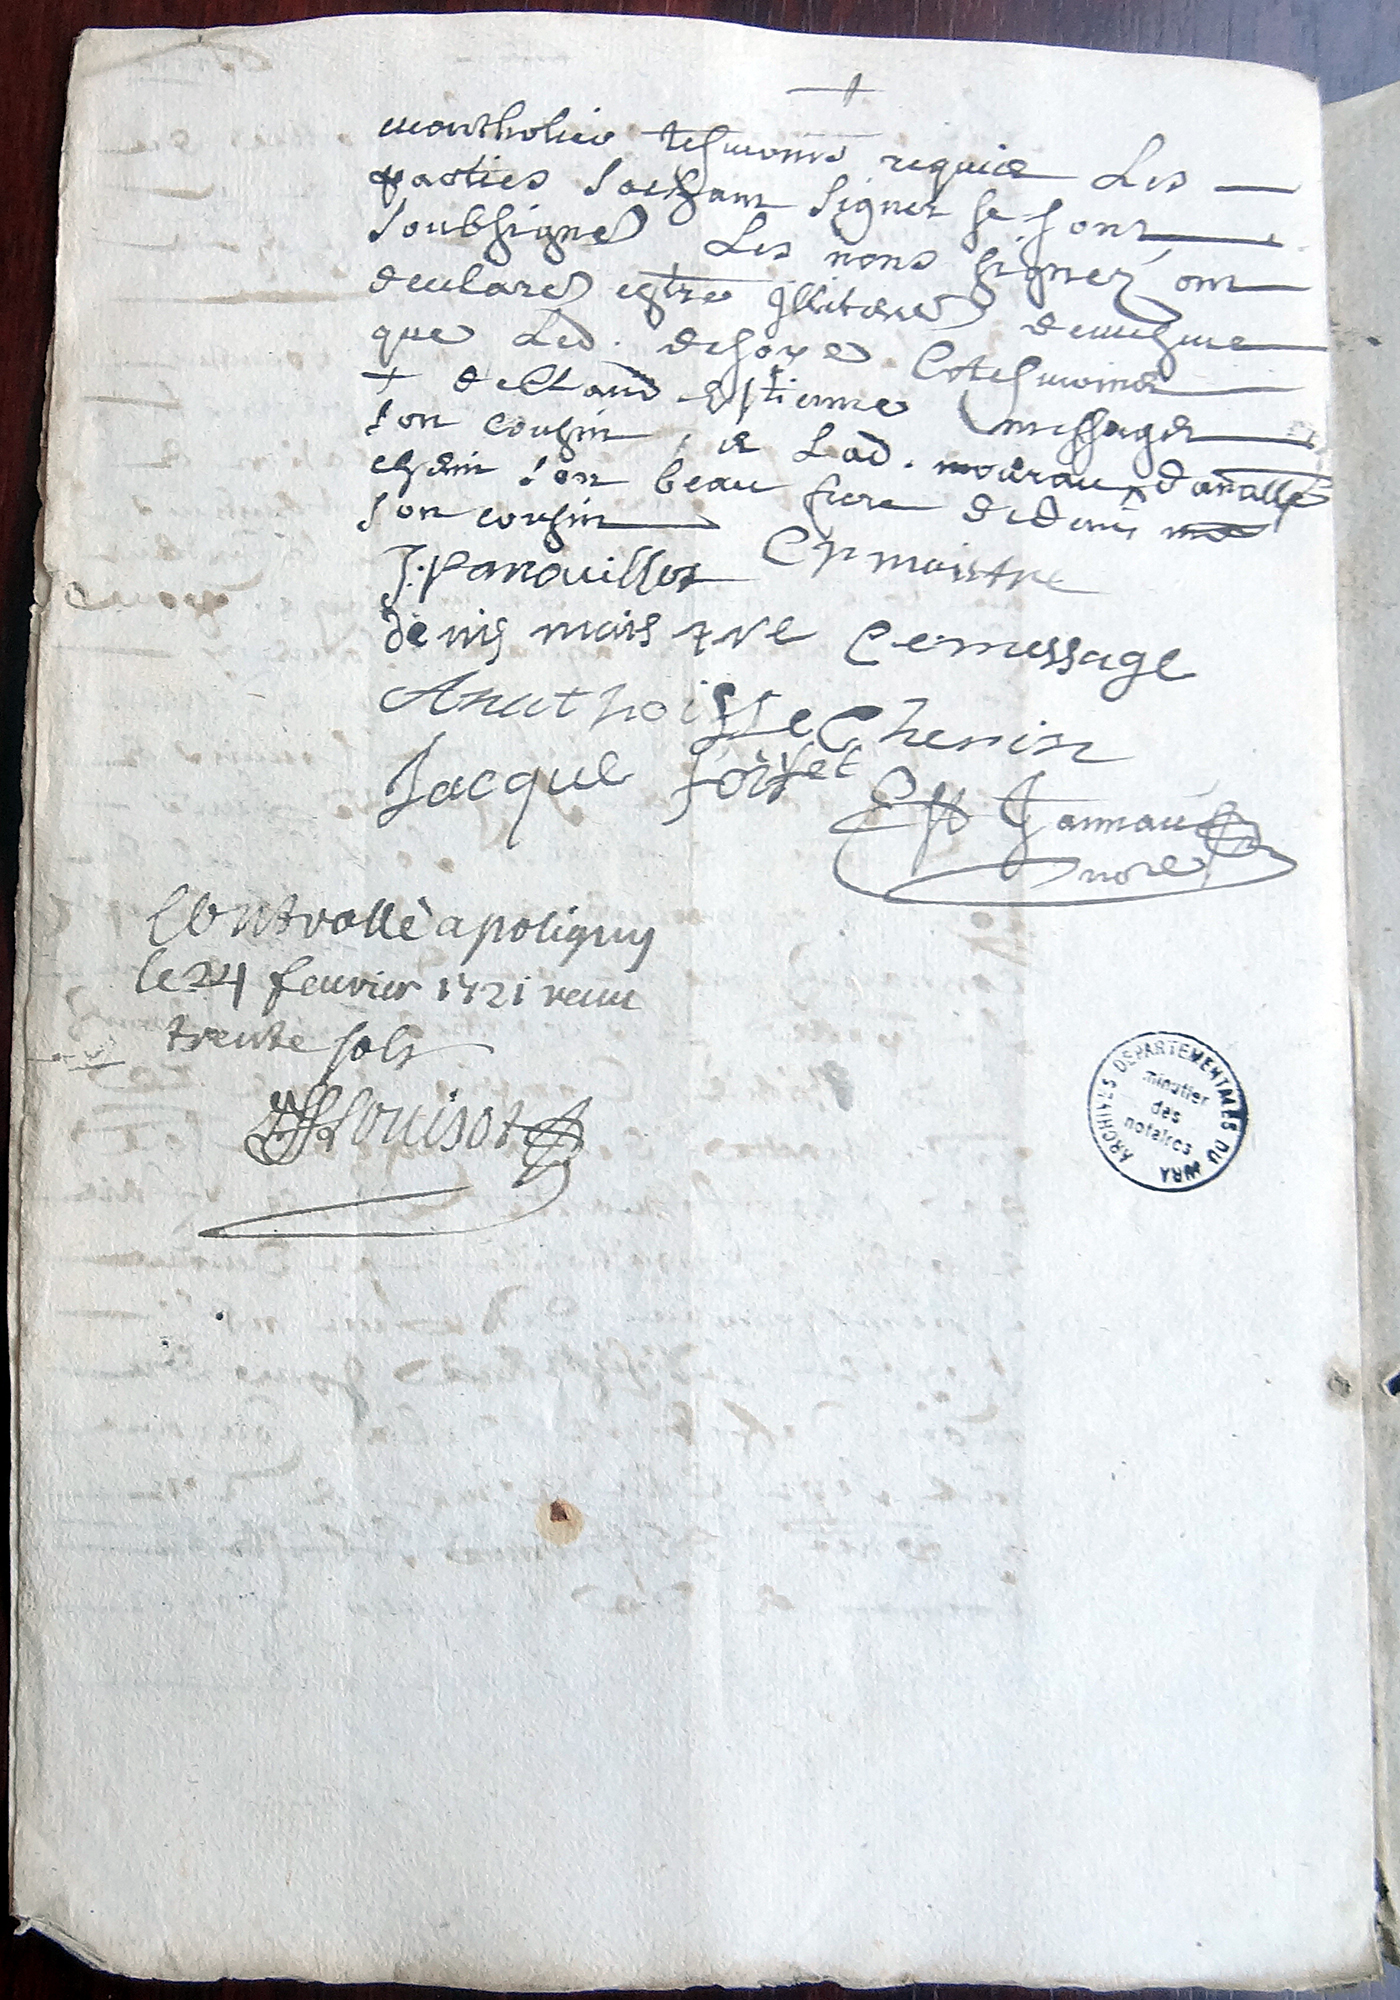 montholier tesmoins requis Les
parties sachant signer se sont
soubsigné Les nons signez ont
declarez estre illiterez demesme
que Led. cotesmoins
+ de Claud Estienne message
son cousin, et Lad. moureau d'anatoille
chenin son beau frere de denis
son cousin
J. Panouillot C p maistre
denis maistre C e message
Anathoille Chenin
Jacque
Est Jannau
nore
Controllé a poligny
le 24 feuvrier 1721 receu
trente sols
Louisot
ARCHIVES DEPARTEMENTALES DU JURA
minutier
des
notaires